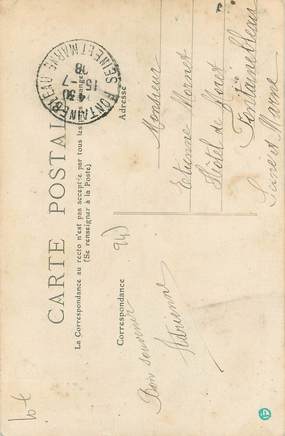 CARTE POSTALE
La Correspondance au recto n'est pas acceptée par tous les
(Se renseigner à la Poste)
Correspondance
Adresse
FONTAINEBLEAU
SEINE ET MARNE
4 30
15 - 7
08
Bon souvenir
Monsieur
Etienne Mornet
Hôtel de Moret
Fontainebleau
Seine et Marne